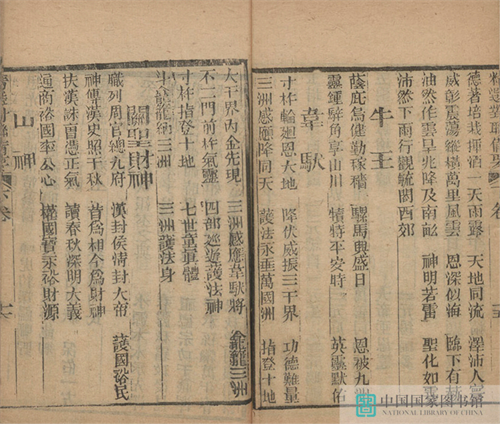 德著培栽揮洒一天雨露　天地同流　澤沛人
威彰震蕩羅構萬里風雲　恩深似海　臨下有赫
油然作雲早兆降及南畝　神明若雷　聖化如
沛然下雨行觀毓閟西郊
牛王
蔭庇催勤稼穡　騾馬興盛日　恩被九洲
靈鍾騂角享山川　犢特平安時　英靈默佑
韋馱
寸杵輪迴恩大地　降伏威振三千界　功德難量
三洲感應降同天　護法永垂萬國洲　指登十地
大千界內金先現　三洲感應韋馱將　金龍三洲
不二門前杵氣靈　四部巡遊護法神
寸杵指登十地　七世童真體
金龍三洲　三洲護法身
關聖財神
職列周官總九府　漢封侯清封大帝　護國裕民
神傳漢史照千秋　昔為相今為財神
扶漢誅曹憑正氣　讀春秋深明大義
通商裕國秉公心　權國寶永裕財源
山神
中国国家图书馆
NATIONAL LIBRARY OF CHINA